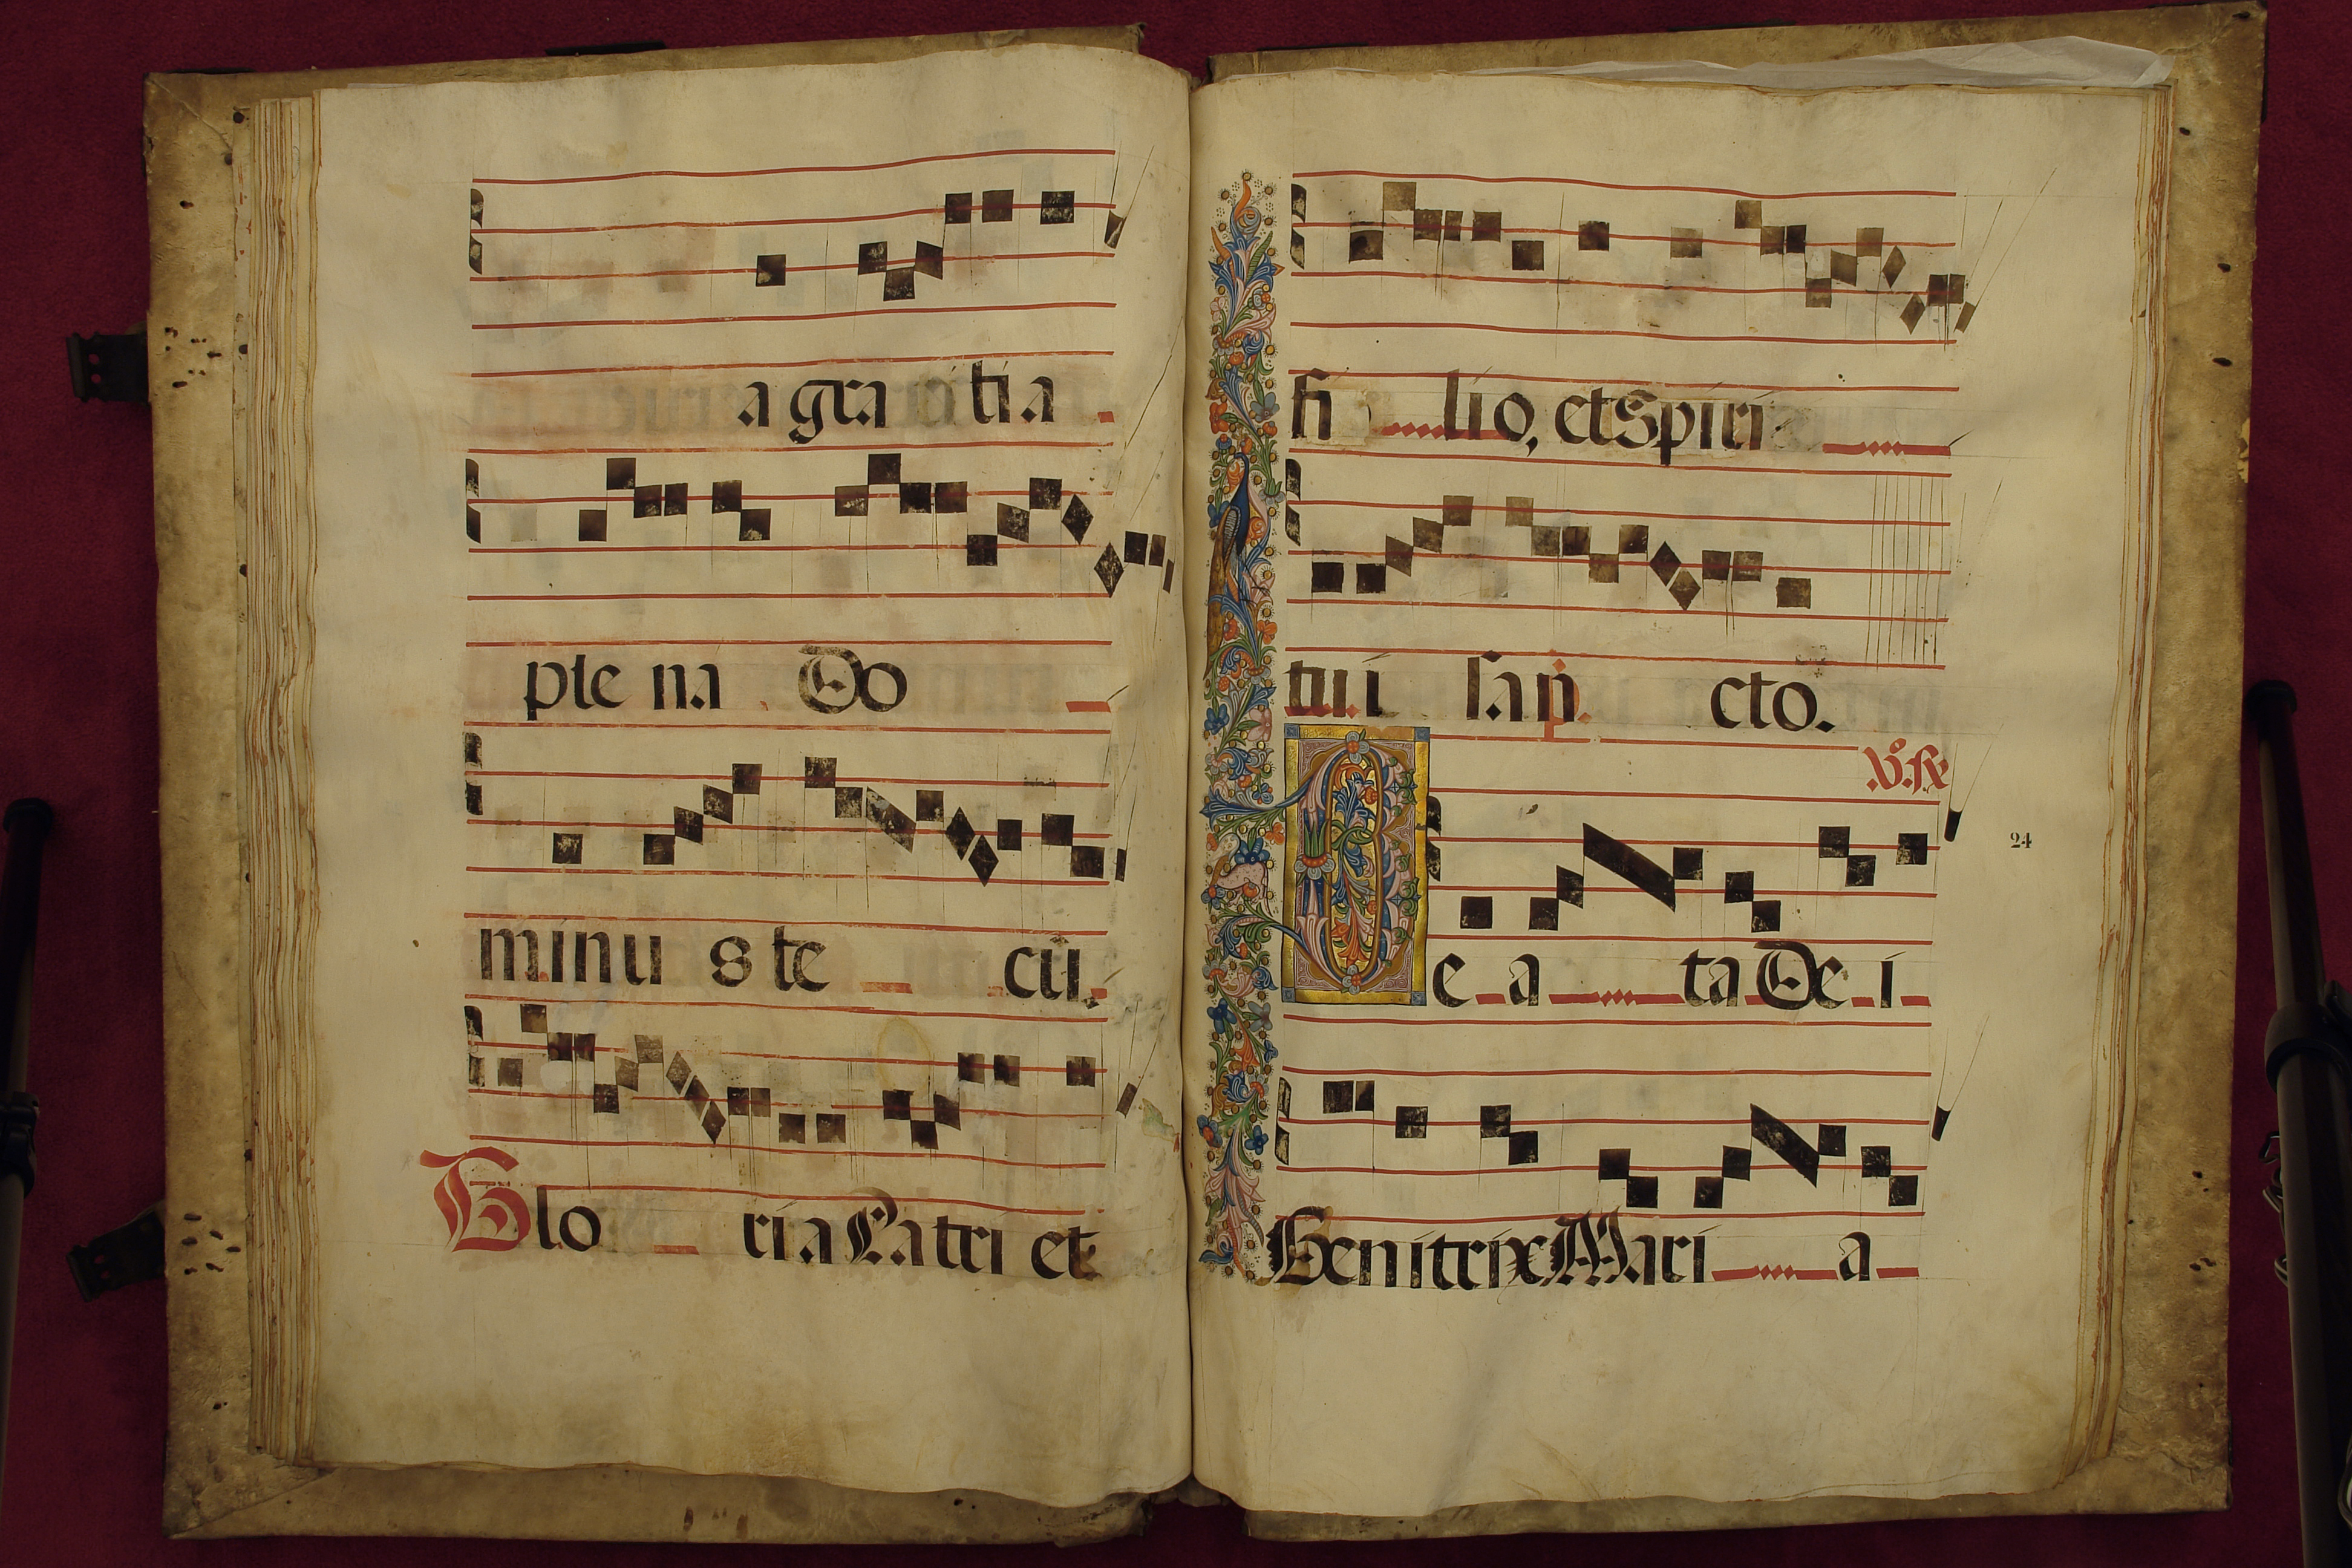 a gra tia
ple na Do
minu s te cū.
Glo ria Patri et
fi lio, et Spiri
tui san cto.
℣. ℟
24
Be a ta De i
Genitrix Mari a